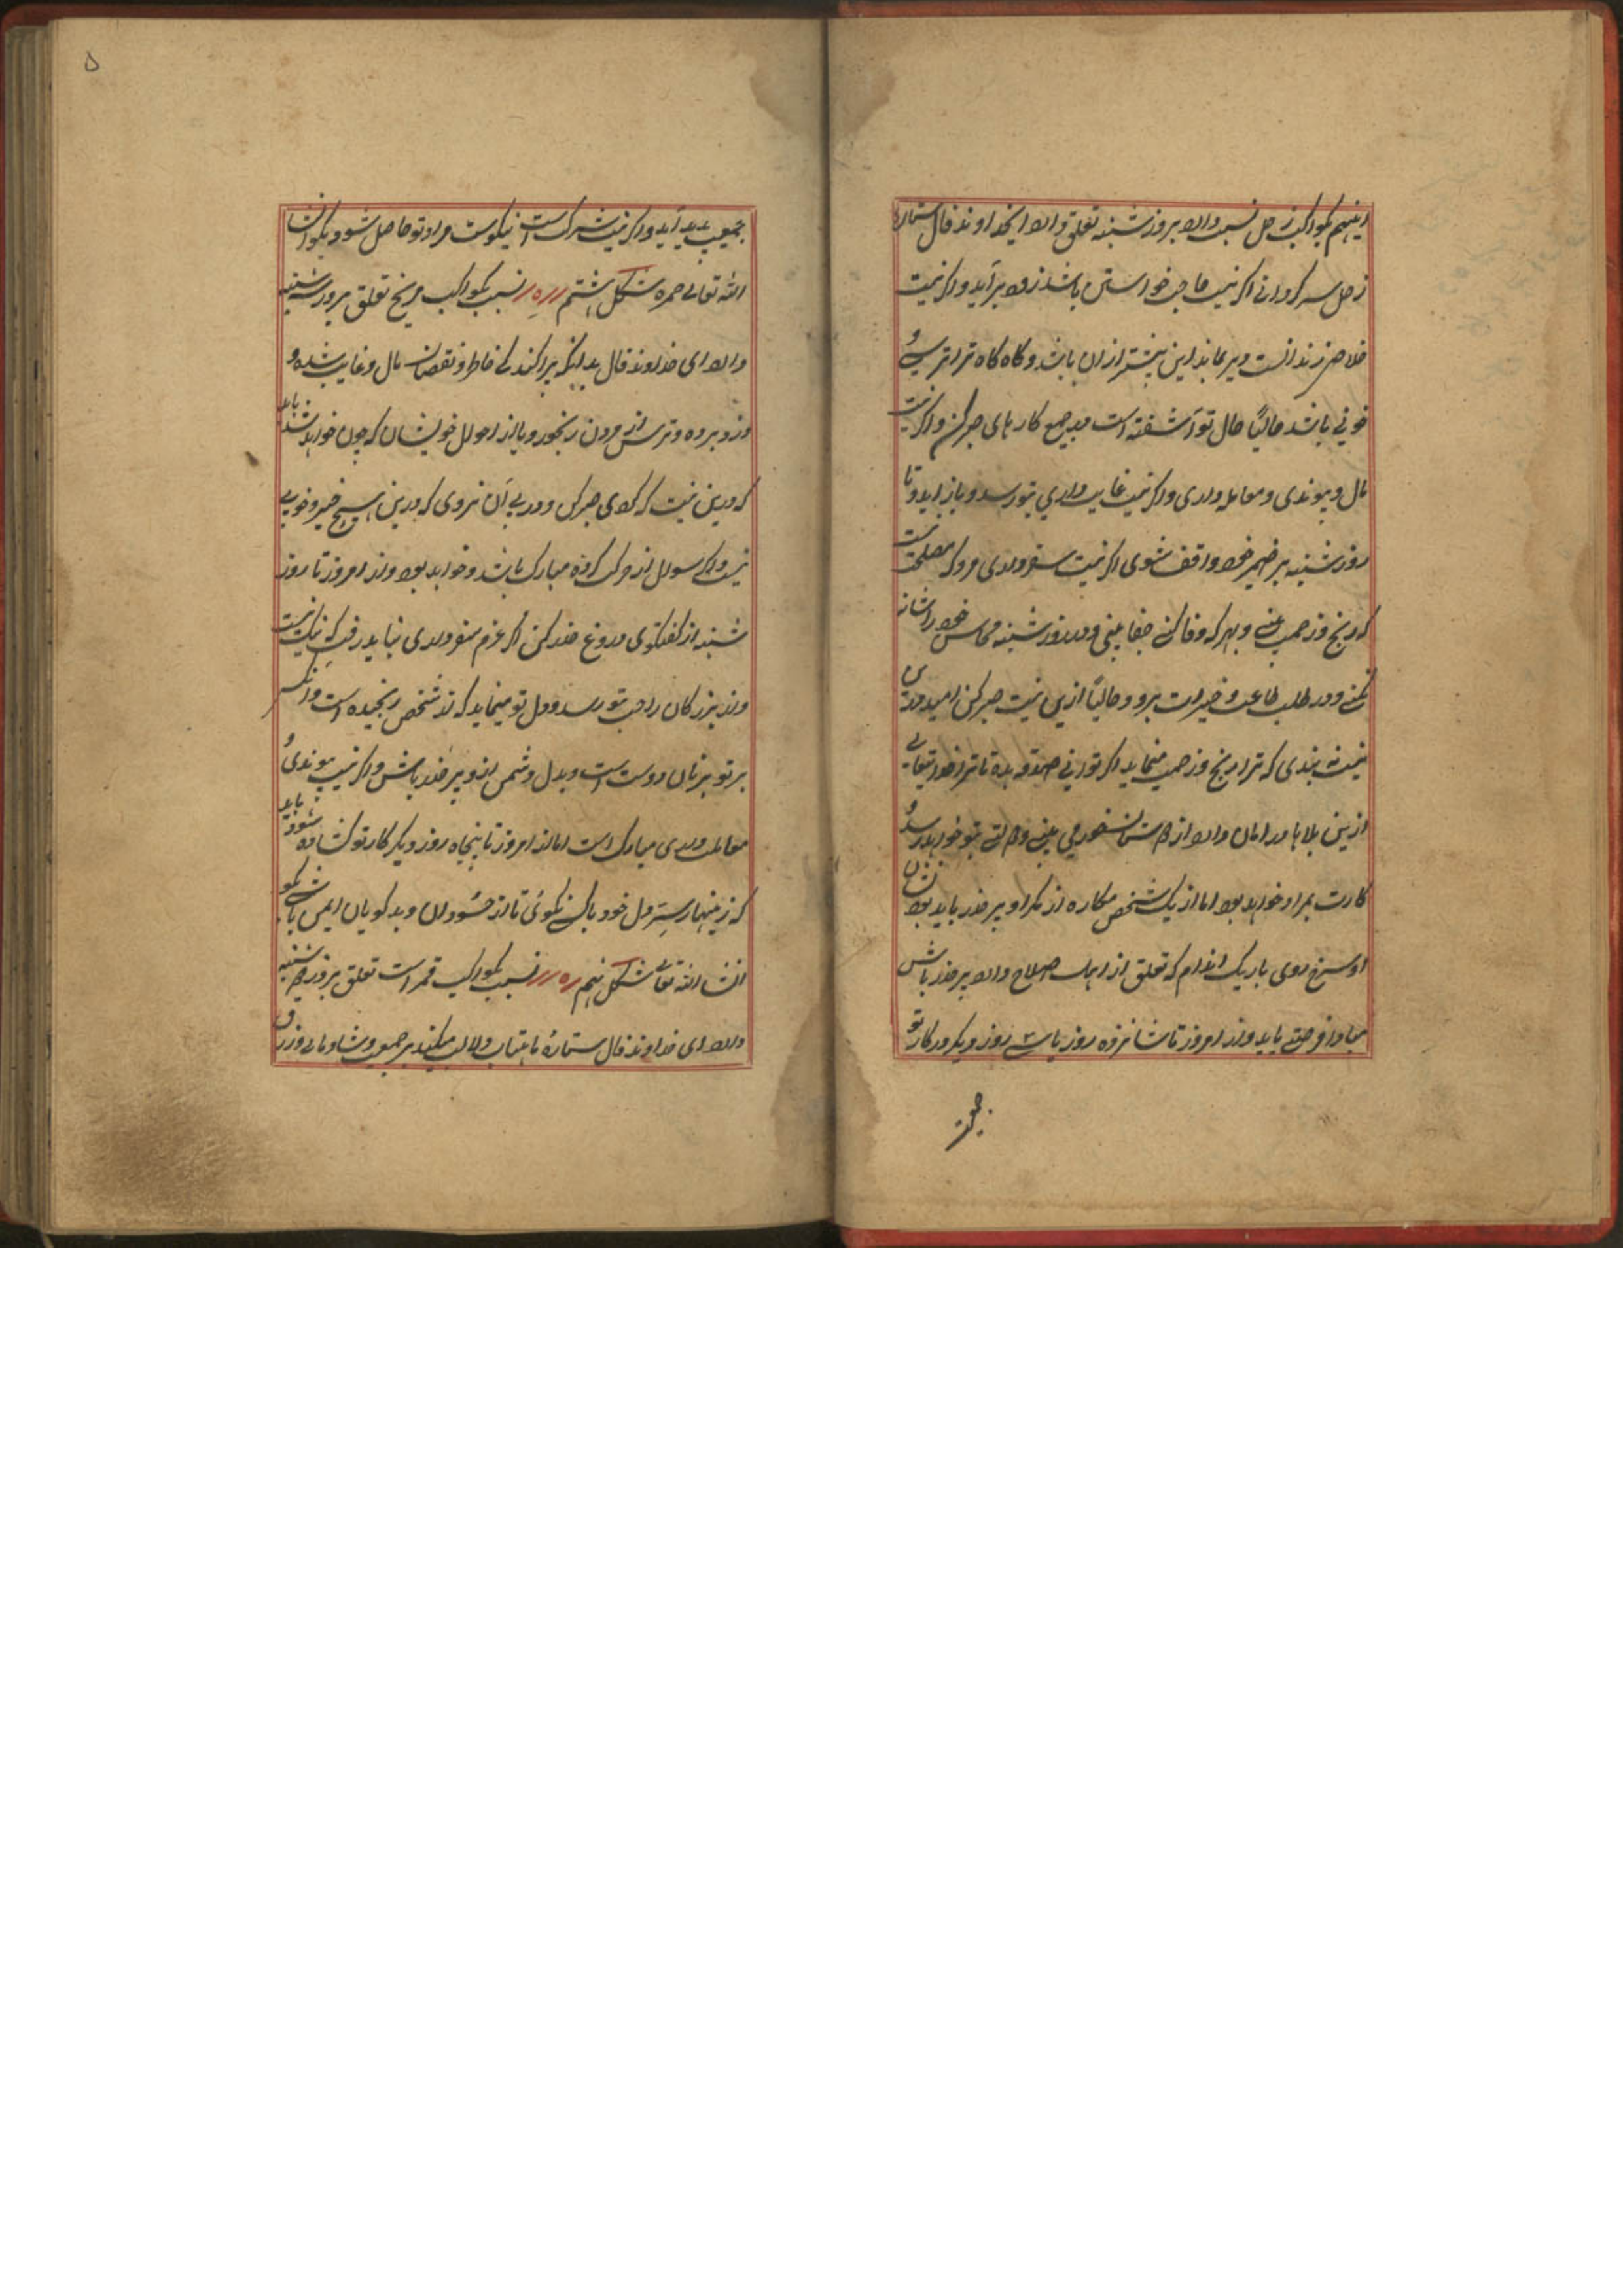 اینهم بکواکب زحل نسبت دارد بروز شنبه تعلق دارد ایخداوند فال ستاره
زحل سر کردانی اگر نیت حاجت خواستن باشد زود برآید و اگر نیت
خلاص زندانست دیر بماند این بیشتر ازان باشد و کاه کاه ترا ترسی و
خوفی باشد حالیاً حال تو آشفته است در جمیع کارهای صبر کن و اگر نیت
مال و پیوندی و معامله داری و اگر نیت غایب داری بتو رسد و باز اید و تا
روز شنبه بر ضمیر خود واقف شوی اگر نیت سفر داری مرو که مصلحت نیست
که رنج و زحمت بینی و بهر که وفا کنی جفا بینی و در روز شنبه محاسن خود را شانه
نکنی و در طلب طاعت و خیرات برو و حالیاً ازین نیت صبر کن امید
که ترا رنج و زحمت مینماید اگر توانی صدقه بده تا ترا خدایتعالی
ازین بلاها در امان دارد از دشمنان می بینی و دولتی بتو خواهد رسید و
کارت بمراد خواهد بود اما از یک شخص مکاره از مکر او بر حذر باید بود نشان
او سرخ روی باریک اندام که تعلق از اهل صلاح دارد بر حذر باش
مبادا فرصتی یابد و از امروز تا شانزده روز یا سی روز دیگر در کار تو
جمعیت
۵
جمعیت پدید آید و اگر نیت شرکت است نیکوست مراد تو حاصل شود بگو انشا
الله تعالی حمره شکل هشتم نسبت بکواکب مریخ تعلق بروز سه شنبه
دارد ای خداوند فال بدانکه پراکندگی خاطر و نقصان مال و غایب شده و
دزد برده و ترس از مردن رنجور و یا از احوال خویشان که چون خواهد شد باید
که درین نیت که کردی صبر کن و در پی آن نروی که درین هیچ خیر و خوبی
نیست و اگر سوال از حرکت کرده مبارک باشد و خواهد بود و از امروز تا روز
شنبه از کفتکوی دروغ حذر کن اگر عزم سفر داری نباید رفت که نیک نیست
و از بزرکان راحت بتو رسد و دل تو مینماید که از شخصی رنجیده است و انکس
بر تو بزبان دوست است و بدل دشمن ازو بر حذر باش و اگر نیت پیوندی و
معاملت داری مبارک است اما از امروز تا پنجاه روز دیگر کار تو کشاده شود باید
که زینهار سر دل خود با کسی نکوئی تا از حسودان و بدکویان ایمن باشی بگو
انشا الله تعالی شکل نهم نسبت بکواکب قمر است تعلق بروز دوشنبه
دارد ای خداوند فال ستاره ماهتاب دلالت میکند بر جمعیت و شادمانی و رزق